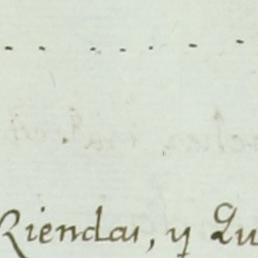 Riendas, y Qu